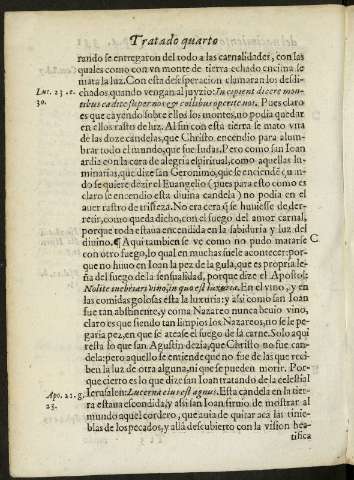 Tratado quarto
rando se entregaron del todo a las carnalidades, con las
quales como con vn monte de tierra echado encima se
mata la luz. Con esta desesperacion clamaran los desdi-
Luc. 23. e. chados, quando vengan al juyzio: Incipient dicere mon-
30. tibus cadite super nos & collibus operite nos. Pues claro
es que cayendo sobre ellos los montes, no podia quedar
en ellos rastro de luz. Al fin con esta tierra se mato vna
de las doze candelas, que Christo encendio para alum-
brar todo el mundo, que fue Iudas. Pero como san Ioan
ardia con la cera de alegria espiritual, como aquellas lu-
minarias, que dize san Geronimo, que se encienden quan
do se quiere dezir el Euangelio (pues para esto como es
claro se encendio esta diuina candela) no podia en el
auer rastro de tristeza. No era cera que se huuiesse de der-
retir, como queda dicho, con el fuego del amor carnal,
porque toda estaua encendida en la sabiduria y luz del
diuino. ¶ Aqui tambien se ve como no pudo matarse C
con otro fuego, lo qual en muchas suele acontecer: por-
que no huuo en Ioan la pez de la gula, que es propria le-
ña del fuego de la sensualidad, porque dize el Apostol:
Nolite inebriari vino, in quo est luxuria. En el vino, y en
las comidas golosas esta la luxuria: y assi como san Ioan
fue tan abstinente, y coma Nazareo nunca beuio vino,
claro es que siendo tan limpio los Nazareos, no se le pe-
garia pez, en que se atease el fuego de la carne. Solo aqui
resta lo que san Agustin dezia, que Christo no fue can-
dela: pero aquello se entiende que no fue de las que reci-
ben la luz de otra alguna, ni que se pueden morir. Por-
que cierto es lo que dize san Ioan tratando de la celestial
Apo. 21. g. Ierusalen: Lucerna eius est agnus. Esta candela en la tier-
23. ra estaua escondida, y assi san Ioan siruio de mostrar al
mundo aquel cordero, que auia de quitar aca las tinie-
blas de los pecados, y allá descubierto con la vision bea-
tifica